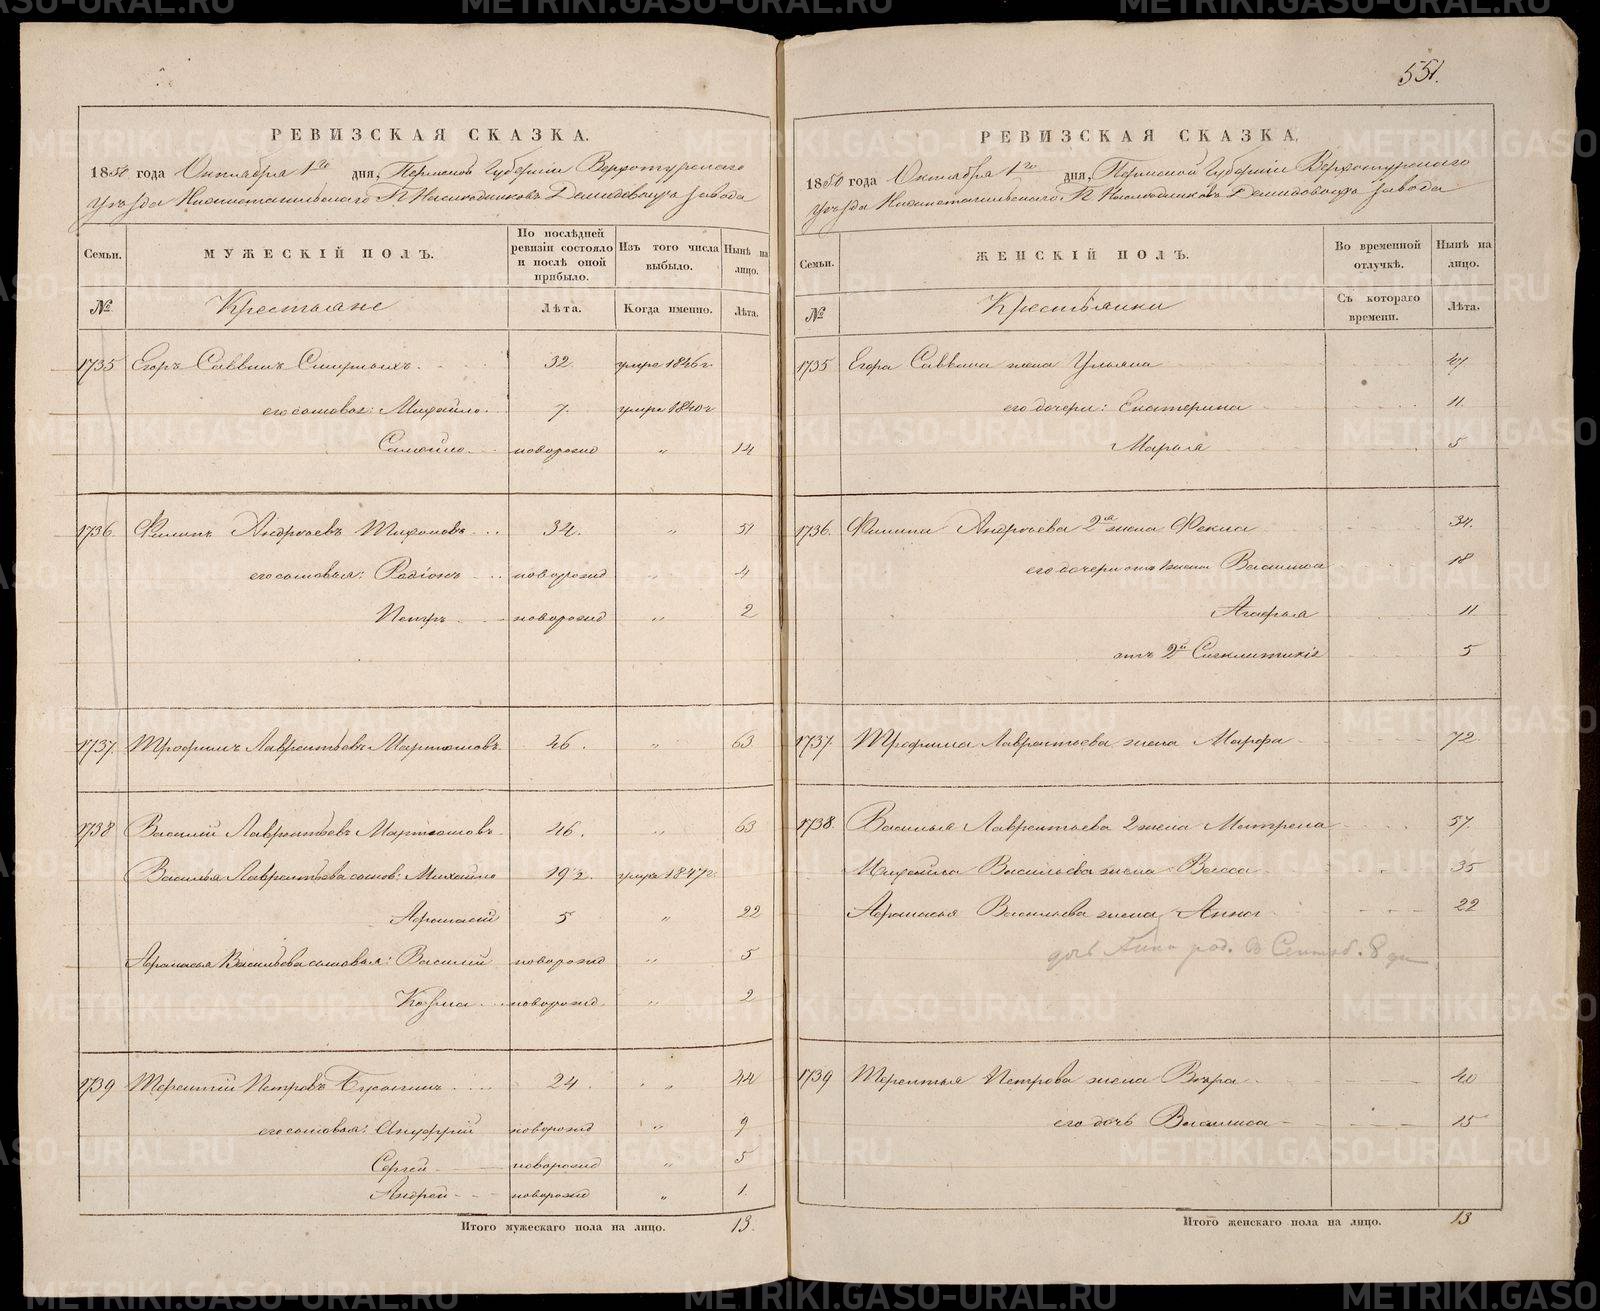 551.
РЕВИЗСКАЯ СКАЗКА.
1850 года Октября 1го дня, Пермской Губернiи Верхотурскаго
Уѣзда Нижнетагильскаго Г. Наслѣдниковъ Демидовыхъ завода
Семьи. МУЖЕСКІЙ ПОЛЪ. По послѣдней ревизіи состояло и послѣ оной прибыло. Изъ того числа выбыло. Нынѣ на лицо.
№ Крестьяне Лѣта. Когда именно. Лѣта.
1735 Егоръ Саввинъ Смирныхъ 32 умре 1846 г.
его сыновья: Михайло 7. умре 1840 г
Самойло новорожд „ 14
1736 Филипъ Андреевъ Тихоновъ 34. „ 51
его сыновья: Радіонъ новорожд „ 4
Петръ новорожд „ 2
1737 Трофимъ Лаврентьевъ Мартюшовъ 46. „ 63
1738 Василій Лаврентьевъ Мартюшовъ 46. „ 63
Василья Лаврентьева сынов: Михайло 19½. умре 1847 г.
Афанасій 5 „ 22
Афанасья Васильева сыновья: Василій новорожд „ 5
Козма новорожд „ 2
1739 Терентій Петровъ 24. „ 44
его сыновья: Ануфрій новорожд „ 9
Сергей новорожд „ 5
Андрей новорожд „ 1.
Итого мужескаго пола на лицо. 13.
РЕВИЗСКАЯ СКАЗКА.
1850 года Октября 1го дня, Пермской Губерніи Верхотурскаго
Уѣзда Нижнетагильскаго Г. Наслѣдниковъ Демидовыхъ завода
Семьи. ЖЕНСКІЙ ПОЛЪ. Во временной отлучкѣ. Нынѣ на лицо.
№ Крестьянки Съ котораго времени. Лѣта.
1735 Егора Саввина жена Ульяна 47
его дочери: Екатерина 11.
Марья 5
1736. Филипа Андреева 2ая жена Фекла 34.
его дочери отъ 1 жены Василиса 18
Агафья 11
отъ 2й Сигклитикія 5
1737. Трофима Лаврентьева жена Марфа 72.
1738. Василья Лаврентьева 2 жена Матрена 57.
Михайла Васильева жена Васса 35
Афанасья Васильева жена Анна 22
дочь Анна род. в Сентяб. 8 дн
1739 Терентья Петрова жена Вѣра 40
его дочь Василиса 15
Итого женскаго пола на лицо. 13
METRIKI.GASO-URAL.RU